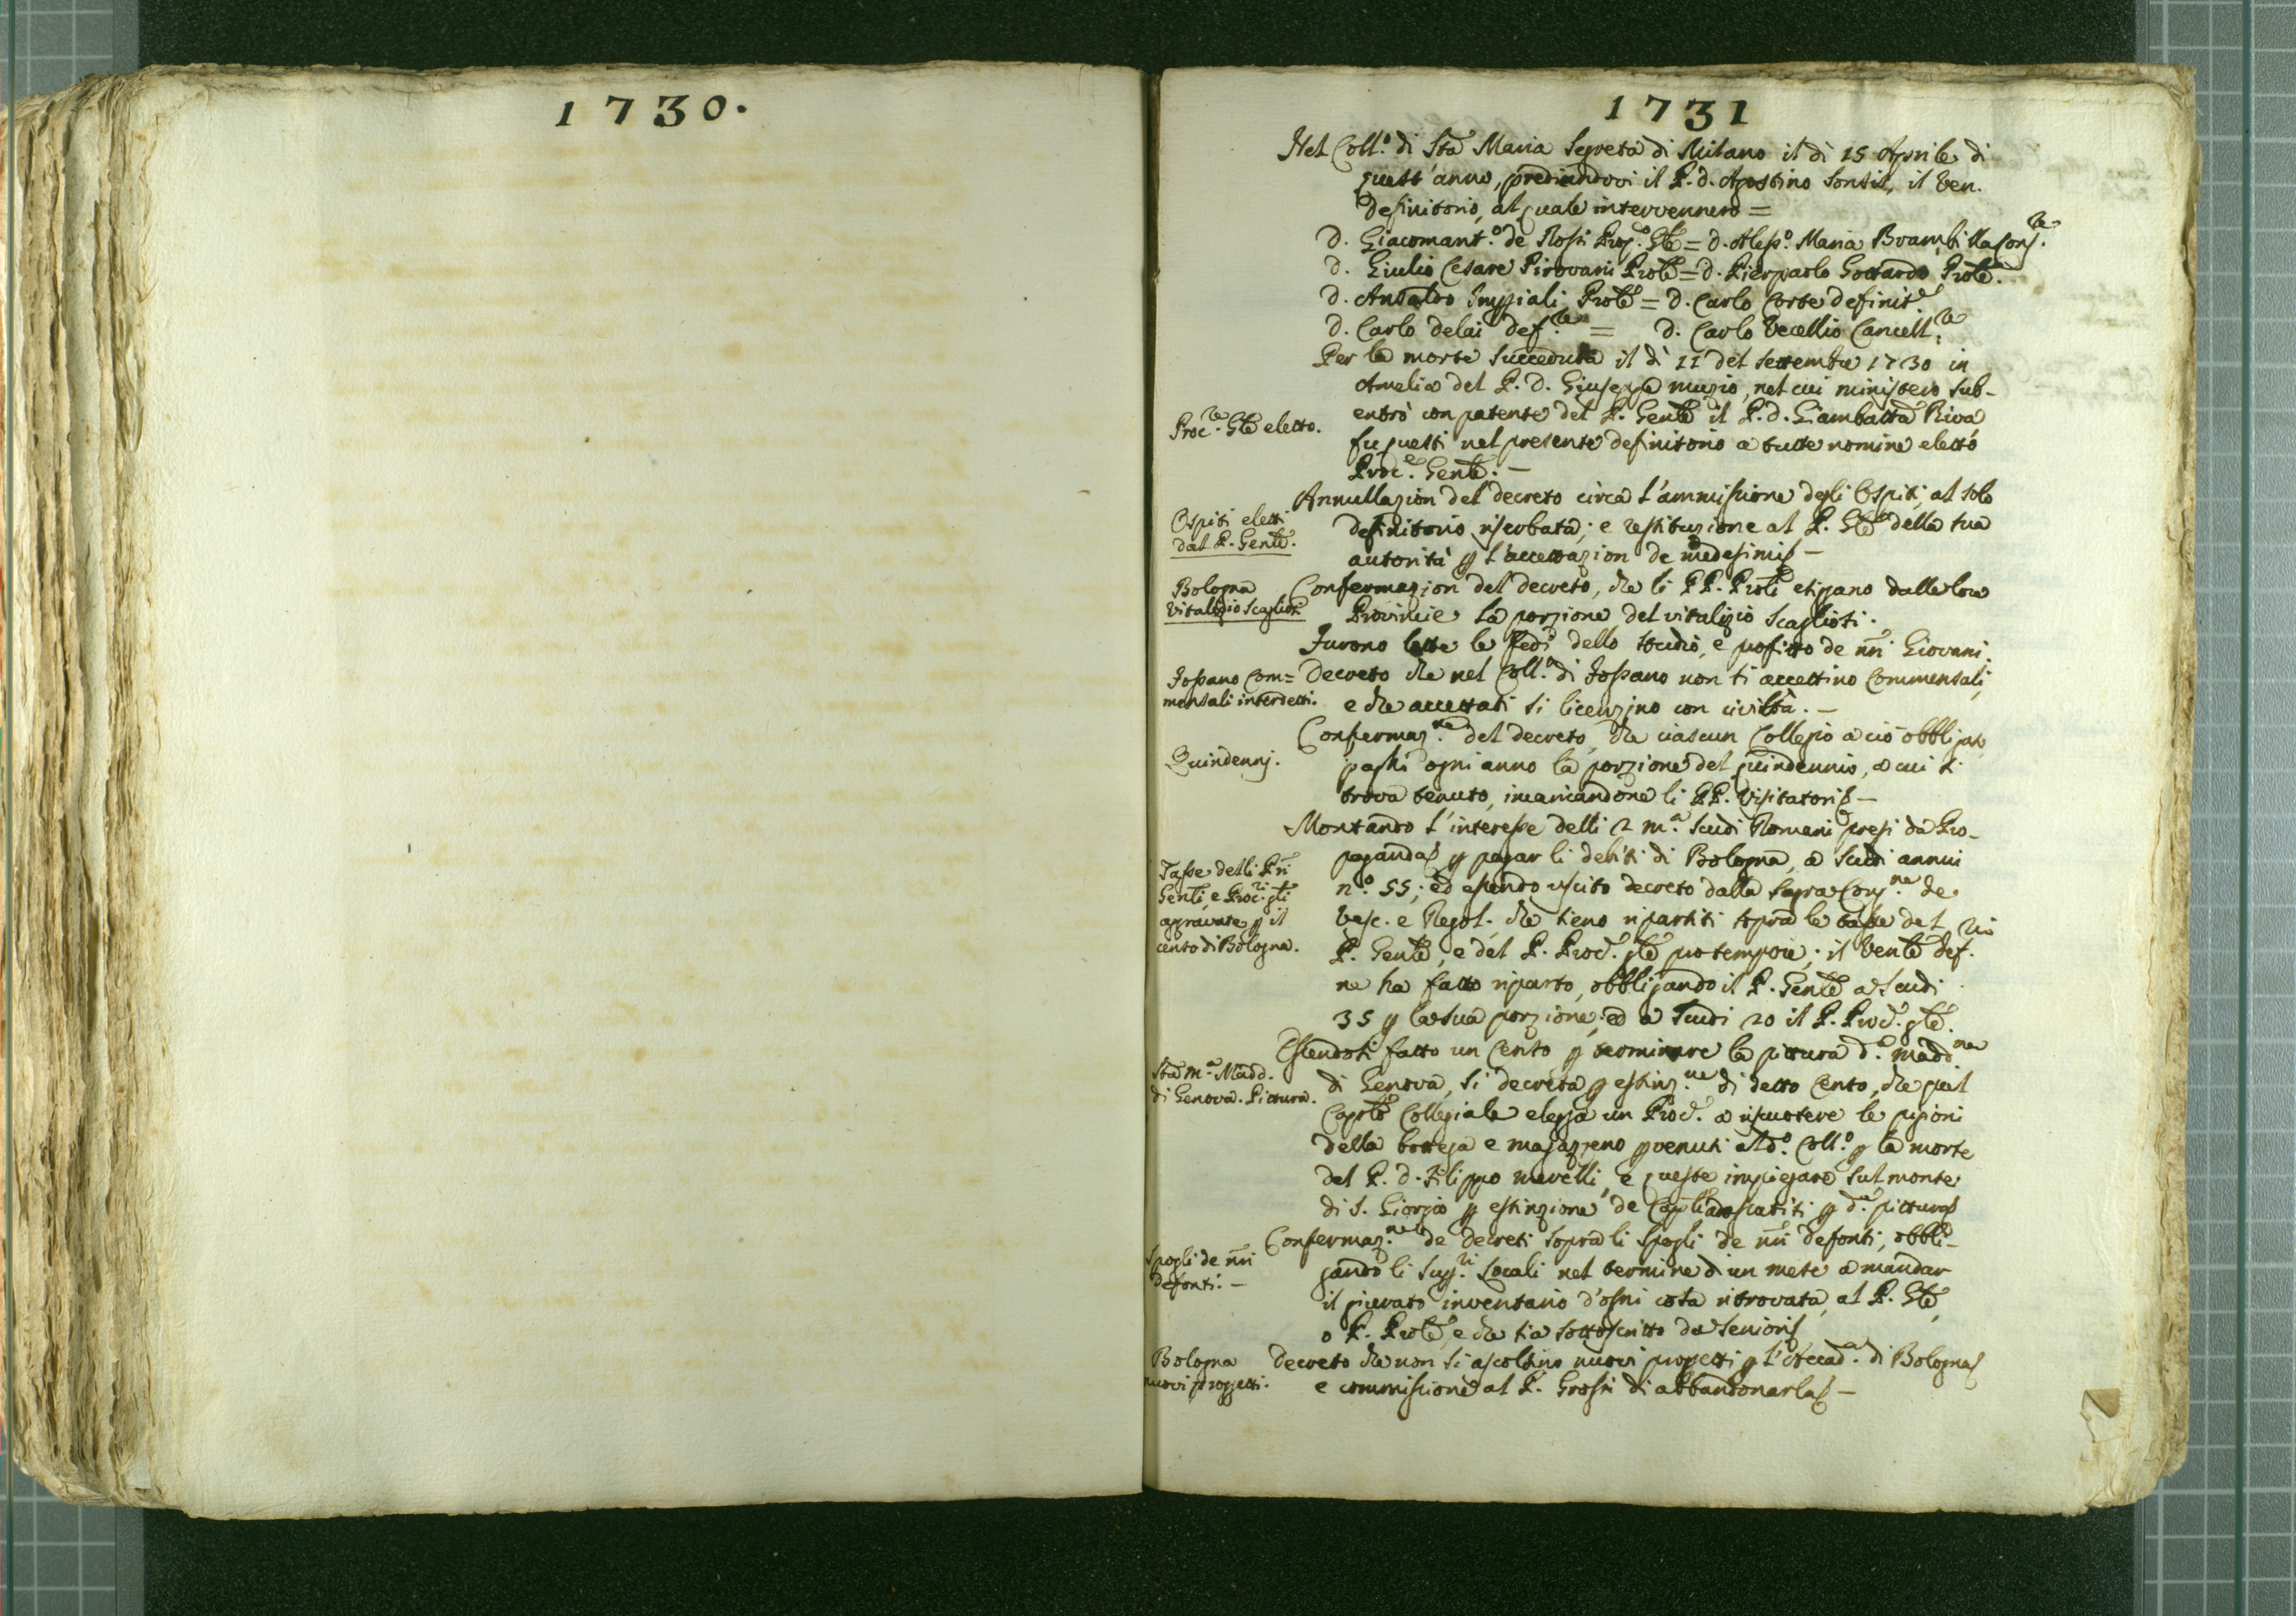 1730.
1731
Nel Coll.º di Sta Maria Segreta di Milano il dì 15 Aprile di
quest'anno, presiandovi il P. d. Agostino Sontis, il Ven.
Definitorio, al quale intervennero =
D. Giacomant.º de Rossi Prep.º Gle = D. Aless.º Maria Brambilla Cons.re
D. Giulio Cesare Pirovani Prole = D. Pierpaolo Gottardo Prole.
D. Ansaldo Imperiali Prole = D. Carlo Corte definit.e
D. Carlo delai def.re = D. Carlo Vecellio Cancell.re
Per la morte succeduta il dì 11 del settembre 1730 in
Amelia del P. D. Giuseppe muzio, nel cui ministero sub-
Proc.re Gle eletto.
entrò con patente del P. Genle il P. d. Giambatta Riva
fu questi nel presente definitorio a tutte nomine eletto
Proc.e Genle. —
Annullazion del decreto circa l'ammissione degli Ospiti, al solo
Ospiti eletti
dal P. Genle.
definitorio riserbata; e restituzione al P. Gle della sua
autorità p l'accettazion de medesimi —
Bologna
Vitalizio Scaglioti
Confermazion del decreto, che li PP. Proli esigano dalle loro
Provincie la porzione del vitalizio Scaglioti.
Furono lette le fedi dello studio, e profitto de nri Giovani.
Fossano Com=
mensali interdetti.
Decreto che nel Coll.º di Fossano non si accettino Commensali,
e che accettati si licenzino con civiltà. —
Quindennj.
Confermaz.ne del decreto, che ciascun Collegio a ciò obbligato
paghi ogni anno la porzione del quindennio, a cui si
trova tenuto, incaricandone li PP. Visitatori —
Montando l'interesse delli 2 m.a scudi Romani presi da Pro-
Tasse delli Pri
Genli, e Proc.ri gli
aggravate p il
cento di Bologna.
paganda p pagar li debiti di Bologna, a scudi annui
n.º 55; ed essendo uscito decreto dalla Sagra Cong.ne de
Vesc. e Regol. che sieno ripartiti sopra le tasse del
P. Genle, e del P. Proc.e gle pro tempore; il Venle def.rio
ne ha fatto riparto, obbligando il P. Genle a scudi
35 p la sua porzione, ed a scudi 20 il P. Proc.e gle.
Essendosi fatto un Cento p terminare la pittura d.a madd.na
Sta M.a Madd.
di Genova. Pittura.
di Genova, si decreta p estinz.ne di detto Cento, che quel
Caplo Collegiale elegga un Proc.e a riscuotere le pigioni
della bottega e magazzeno pvenuti al d.º Coll.º p la morte
del P. d. Filippo merelli, e queste impiegare sul monte
di S. Giorgio p estinzione de Capli p d.a pittura
Spogli de nri
defonti. —
Confermaz.ne de decreti sopra li spogli de nri defonti, obbli-
gando li Sup.ri Locali nel termine d'un mese a mandar
il giurato inventario d'ogni cosa ritrovata, al P. Gle,
o P. Prole, e che sia sottoscritto da Seniori
Bologna
nuovi progetti.
Decreto che non si ascoltino nuovi progetti p l'Accad.a di Bologna
e commissione al P. Grossi di abbandonarla —